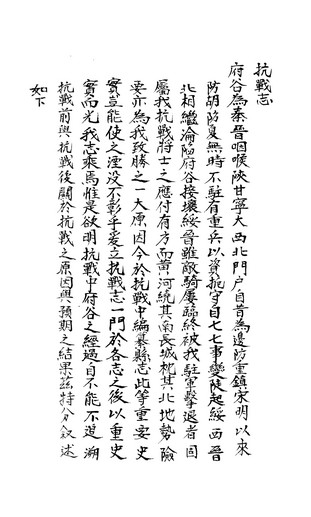 抗戰志
府谷為秦晉咽喉陝甘寧大西北門户自昔為邊防重鎮宋明以來
防胡防夏無時不駐有重兵以資扼守自七七事變陡起綏西晉
北相繼淪陷府谷接壤綏晉雖敵騎屢臨終被我駐軍擊退者固
屬我抗戰將士之應付有方而黄河繞其南長城枕其北地勢險
要亦為我致勝之一大原因今於抗戰中編纂縣志此等重要史
實豈能使之湮没不彰乎爰立抗戰志一門於各志之後以重史
實而光我志乘焉惟是欲明抗戰中府谷之經過自不能不追溯
抗戰前與抗戰後關於抗戰之原因與預期之結果兹特分叙述
如下